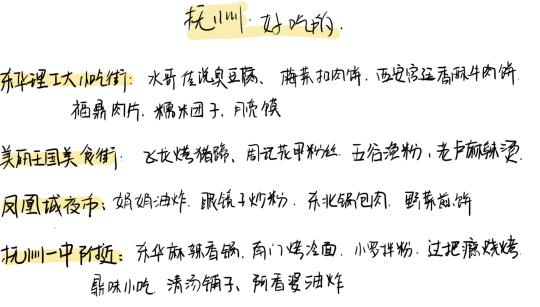 抚州 好吃的.
东华理工大小吃街: 水哥传说臭豆腐、梅菜扣肉饼、西安宫廷香酥牛肉饼
福鼎肉片、糯米团子、月亮馍
美丽王国美食街: 飞龙烤猪蹄、周记花甲粉丝、五谷渔粉,老卢麻辣烫
凤凰城夜市: 娟娟油炸、眼镜子炒粉、东北锅包肉、野菜煎饼
抚州一中附近: 东华麻辣香锅、南门烤冷面、小罗拌粉、过把瘾烧烤
鼎味小吃、清汤铺子、阿香婆油炸